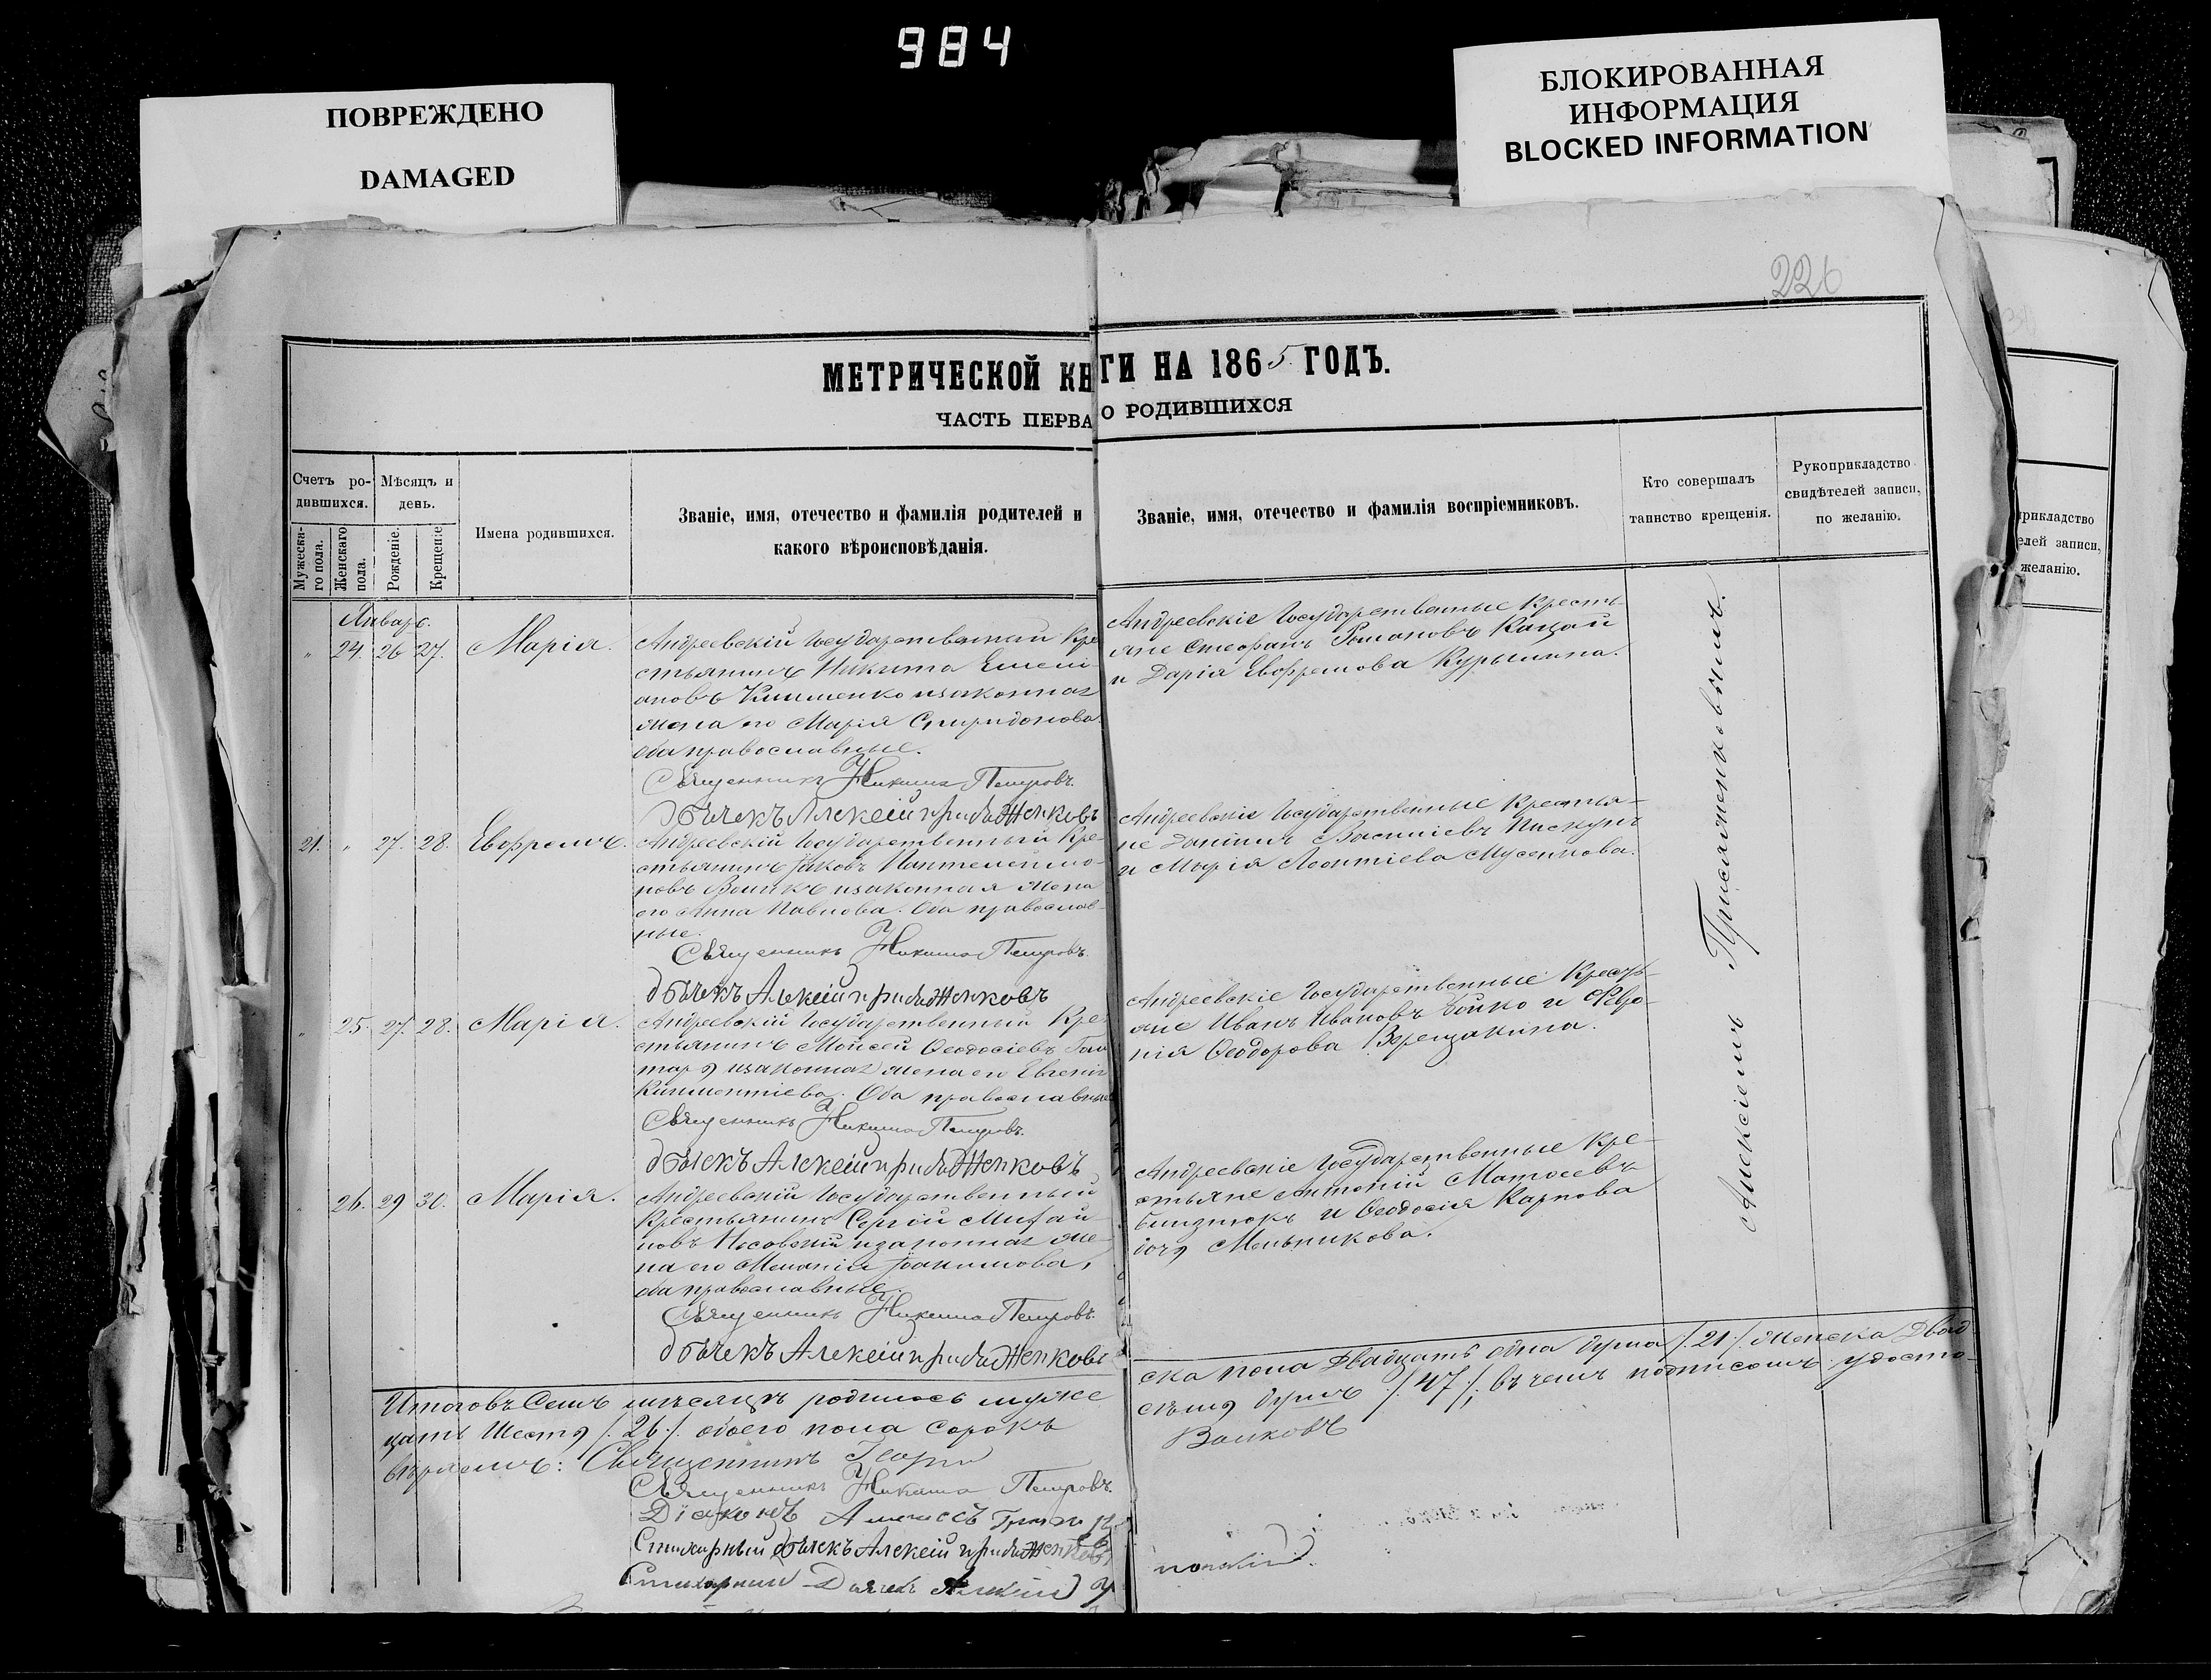 984
ПОВРЕЖДЕНО
DAMAGED
БЛОКИРОВАННАЯ
ИНФОРМАЦИЯ
BLOCKED INFORMATION
226
МЕТРИЧЕСКОЙ КН ГИ НА 1865 ГОДЪ.
ЧАСТЬ ПЕРВА О РОДИВШИХСЯ
Счетъ ро-
дившихся.
Мужеска-
го пола.
Женскаго
пола.
Мѣсяцъ и
день.
Рожденіе.
Крещеніе
Имена родившихся.
Званіе, имя, отечество и фамилія родителей и
какого вѣроисповѣданія.
Званіе, имя, отечество и фамилія воспріемниковъ.
Кто совершалъ
таинство крещенія.
Рукоприкладство
свидѣтелей записи,
по желанію.
рикладство
елей записи,
желанію.
Январь.
" 24. 26 27. Марія.
Андреевскій Государственный Кре
стьянинъ Никита Емелі
ановъ Клименко и законная
жена его Марія Спиридонова
оба православные.
Священникъ Никита Петровъ.
дьячекъ Алексій
Андреевскіе Государственные Кресть-
яне Стефанъ Романовъ Кацай
и Дарія Евфремова Курылина.
21. " 27. 28. Евфремъ.
Андреевскій Государственный Кре-
стьянинъ Іаковъ Пантелеймо-
новъ и законная жена
его Анна Павлова. Оба православ-
ные.
Священникъ Никита Петровъ.
дьячекъ Алексій
Андреевскіе Государственные Крестья-
не Даніилъ Василіевъ Пискунъ
и Марія Леонтіева
" 25. 27. 28. Марія.
Андреевскій Государственный Кре
стьянинъ Мойсей Ѳеодосіевъ Гон
тарь и законная жена его Евгенія
Климентіева. Оба православные
Священникъ Никита Петровъ.
дьячекъ Алексій
Андреевскіе Государственные Кресть-
яне Иванъ Ивановъ Бойко и Февро-
нія Ѳеодорова Верещакина.
26. 29 30. Марія.
Андреевскій Государственный
Крестьянинъ Сергій Михаи
ловъ Носовскій и законная же
на его Меланія Іоакимова,
оба православные.
Священникъ Никита Петровъ.
дьячекъ Алексій
Андреевскіе Государственные Кре-
стьяне Антоній Матѳеевъ
Близнюкъ и Ѳеодосія Карпова
дочь Мельникова.
Алексіемъ
Итого въ Семъ мѣсяцѣ родилось муже ска пола Двадцать одна душа /.21./ Женска Двад
цать Шесть /.26./ обоего пола Сорокъ семь душъ /.47./, въ чемъ подписомъ удосто-
вѣряемъ: Священникъ Георгій Волковъ
Священникъ Никита Петровъ.
Діаконъ
Стихарный дьячекъ Алексій
Стихарный Дьячекъ Алексій